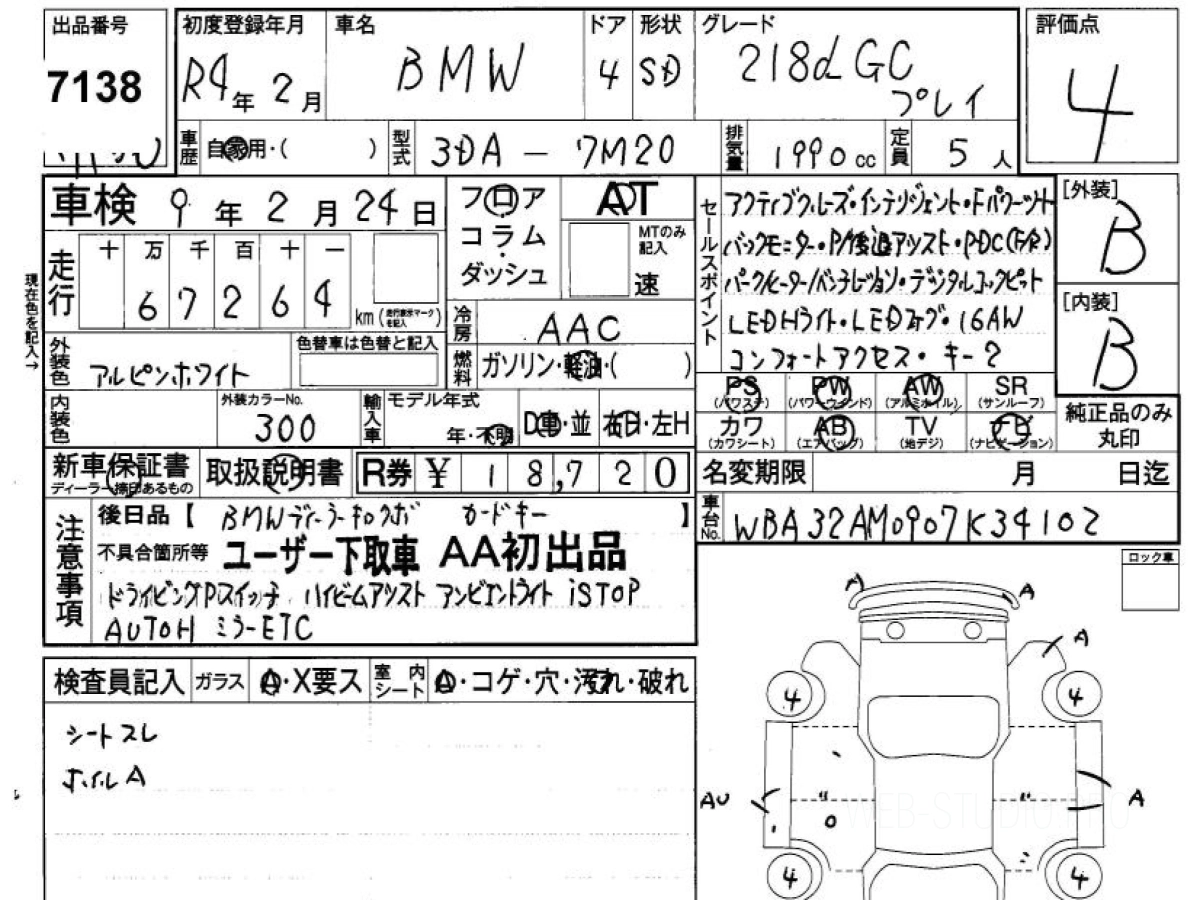 出品番号
7138
初度登録年月
R4年2月
車名
BMW
ドア
4
形状
SD
グレード
218d GC
プレイ
評価点
4
車歴 自家用・( )
型式 3DA-7M20
排気量 1990cc
定員 5人
車検 9年2月24日
フロア
コラム
ダッシュ
AT
MTのみ記入
速
走行
十 万 千 百 十 一
6 7 2 6 4
km(走行表示マークを記入)
現在色を記入→
冷房 AAC
外装色 アルピンホワイト
色替車は色替と記入
燃料 ガソリン・軽油・( )
内装色
外装カラーNo.
300
輸入車
モデル年式
年・不明
D車・並
右H・左H
セールスポイント
アクティブクルーズ・インテリジェント・Fパワーシート
バックモニター・P/後退アシスト・PDC(F/R)
パーク/ヒーター/ベンチレーション・デジタルコックピット
LEDHライト・LEDフォグ・16AW
コンフォートアクセス・キー2
[外装]
B
[内装]
B
PS (パワステ)
PW (パワーウィンド)
AW (アルミホイル)
SR (サンルーフ)
カワ (カワシート)
AB (エアバッグ)
TV (地デジ)
ナビ (ナビゲーション)
純正品のみ丸印
新車保証書
ディーラー捺印あるもの
取扱説明書
R券 ¥ 18,720
名変期限 月 日迄
車台No. WBA32AM0907K34102
注意事項
後日品【 BMWディーラーキロクボ カードキー 】
不具合箇所等 ユーザー下取車 AA初出品
ドライビングPスイッチ ハイビームアシスト アンビエントライト iSTOP
AUTOH ミラーETC
ロック車
検査員記入 ガラス A・X要ス 室内シート A・コゲ・穴・汚れ・破れ
シートスレ
ホイルA
A
A
A
4
4
AU
A
4
4
WEB-STUDIO.PRO